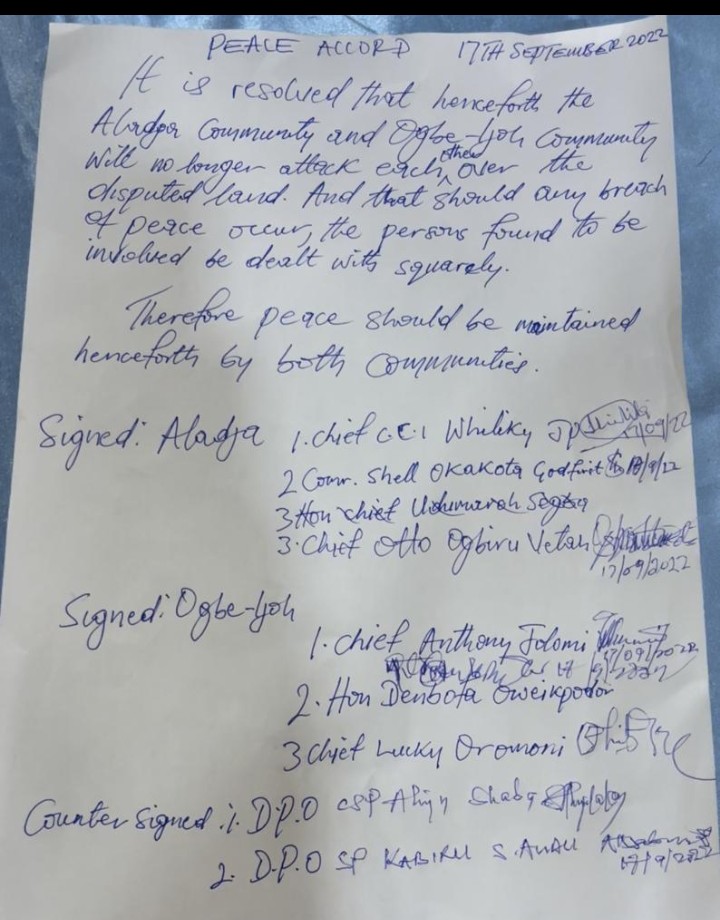 PEACE ACCORD 17TH SEPTEMBER 2022
It is resolved that henceforth the
Aladja Community and Ogbe-Ijoh Community
will no longer attack each other over the
disputed land. And that should any breach
of peace occur, the persons found to be
involved be dealt with squarely.
Therefore peace should be maintained
henceforth by both communities.
Signed: Aladja 1. chief C.E.I Whiliky JP 17/09/22
2 Comr. Shell Okakota Godfirst 18/9/22
3 Hon chief
3. Chief Otto Ogbiru Vetah
17/09/2022
Signed: Ogbe-Ijoh
1. chief Anthony Jolomi
17/09/2022
2. Hon Denbofa Oweikpodor
3 chief Lucky Oromoni
Counter signed: 1. D.P.O CSP Shaba
2. D.P.O SP KABIRU S.
17/9/2022